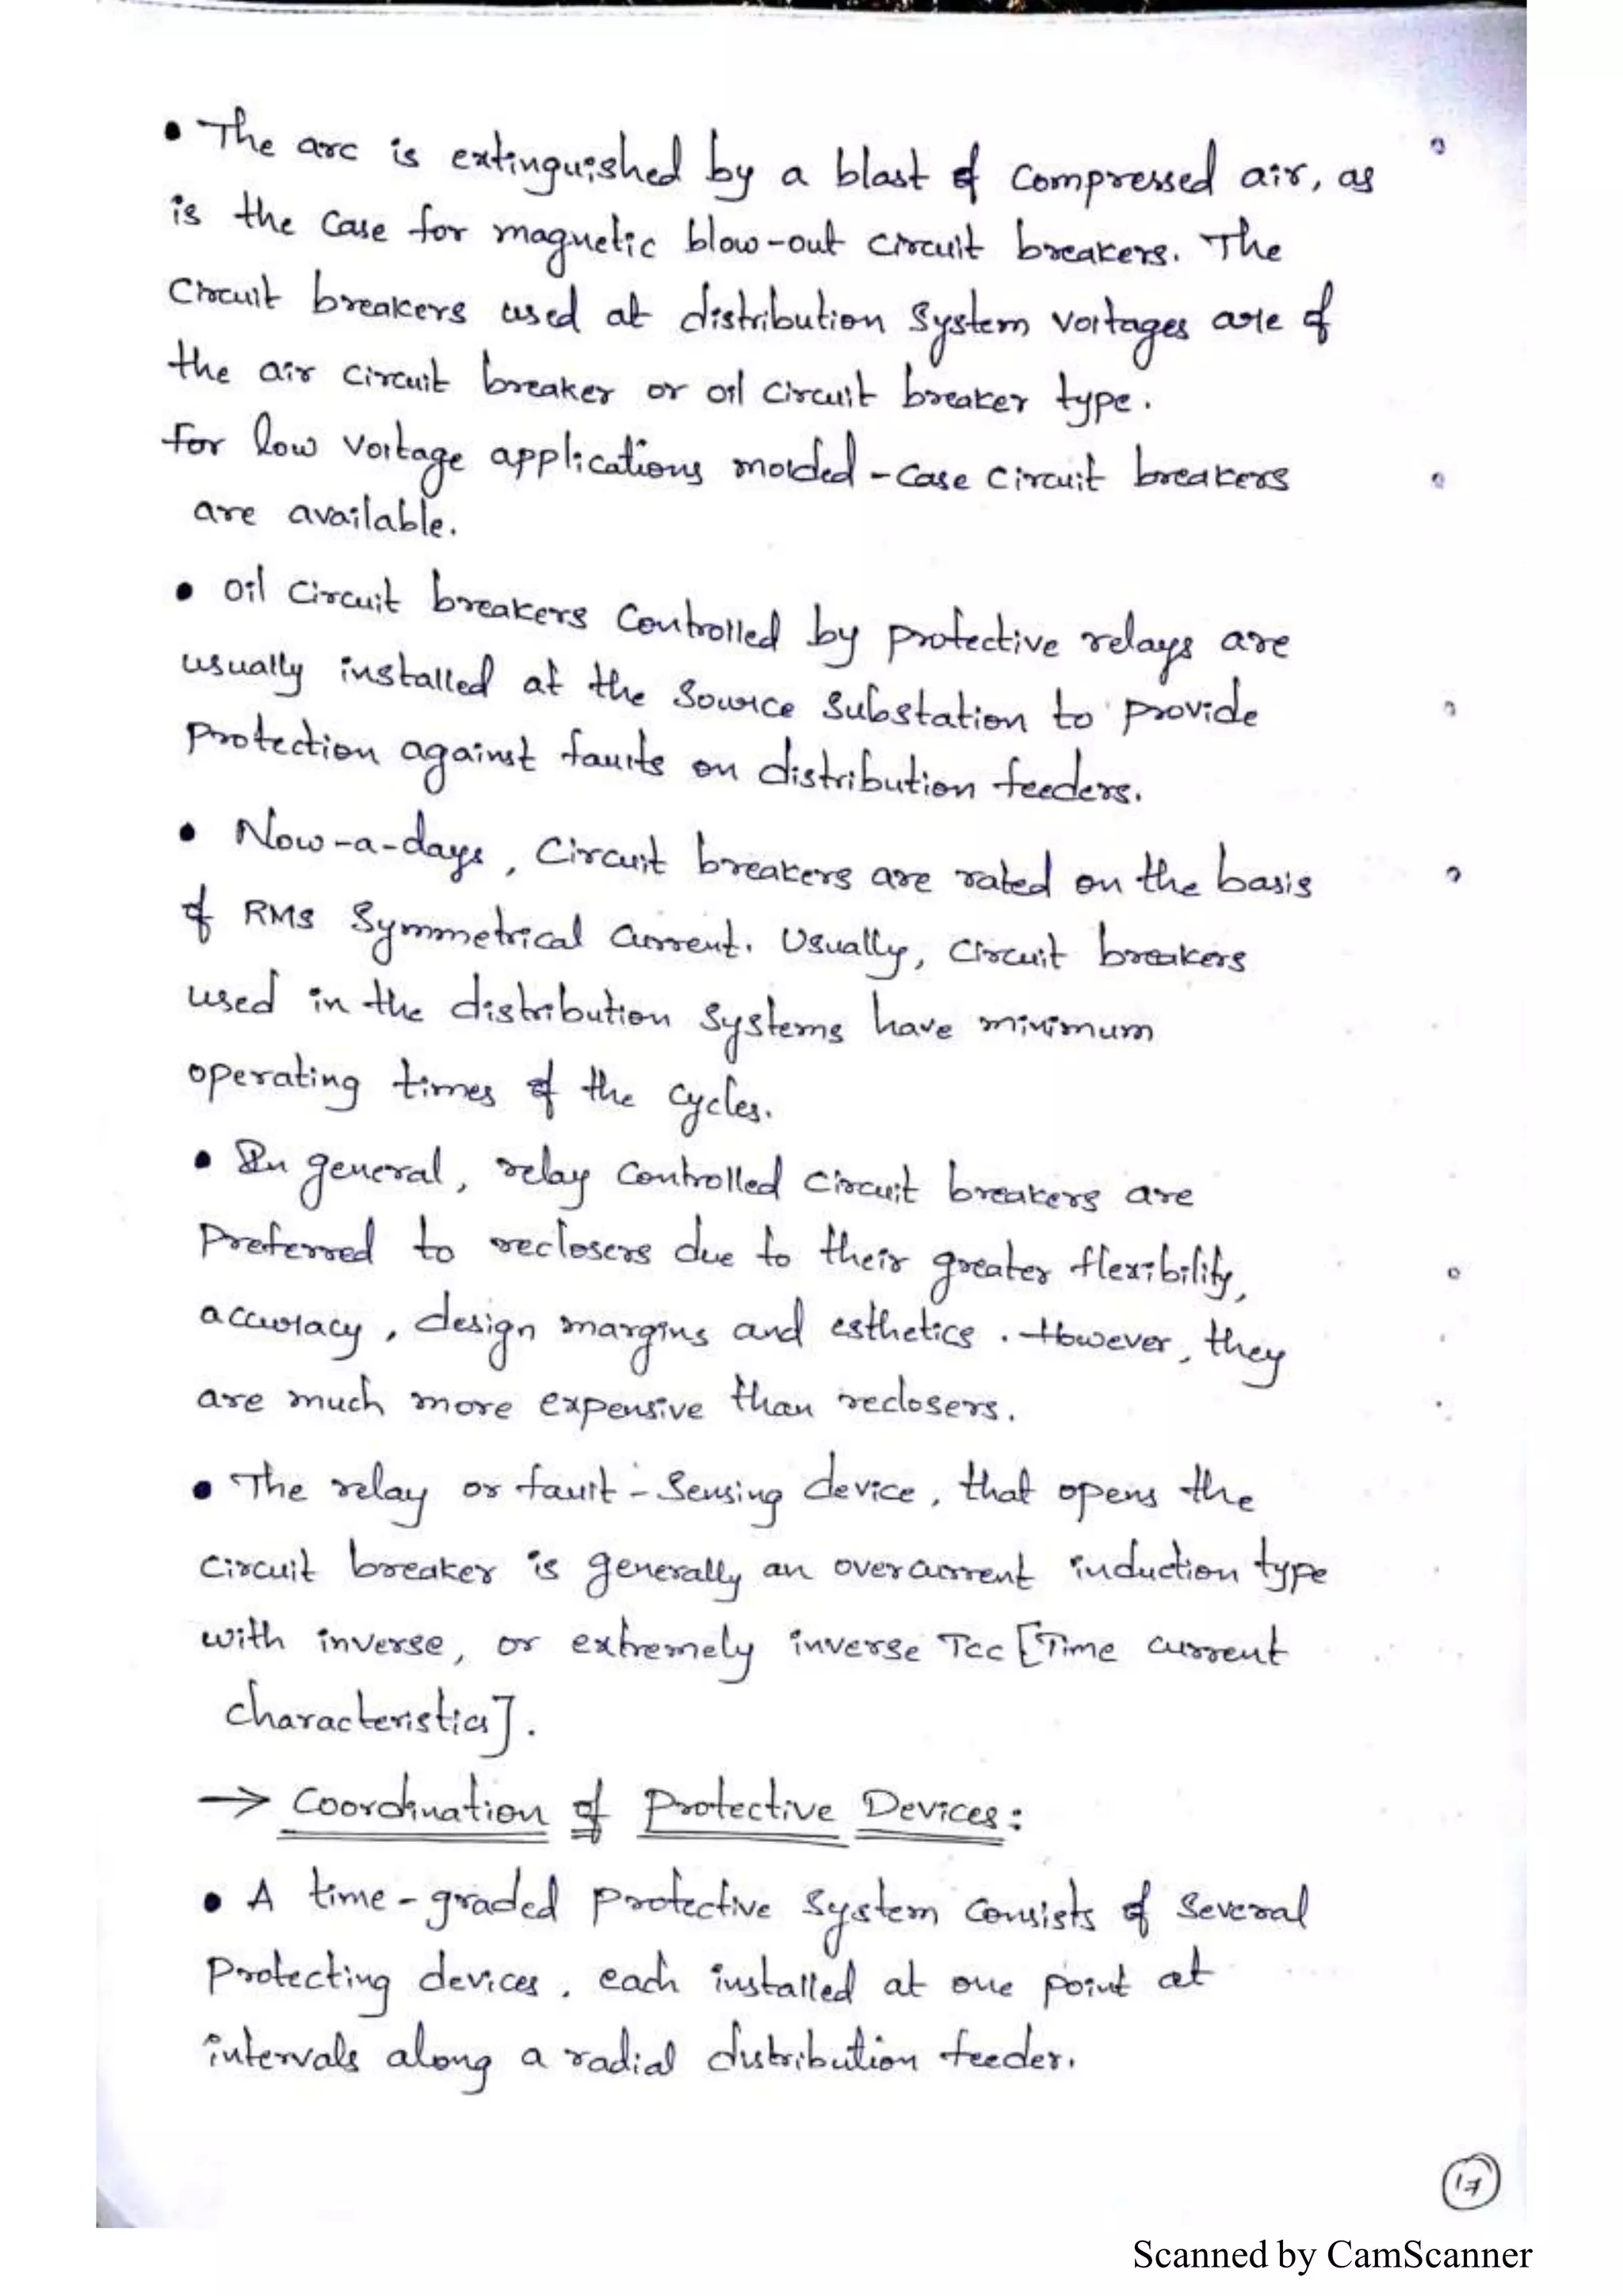 • The arc is extinguished by a blast of compressed air, as
is the case for magnetic blow-out circuit breakers. The
circuit breakers used at distribution system voltages are of
the air circuit breaker or oil circuit breaker type.
for low voltage applications molded-case circuit breakers
are available.
• Oil circuit breakers controlled by protective relays are
usually installed at the source substation to provide
protection against faults on distribution feeders.
• Now-a-days, circuit breakers are rated on the basis
of RMS symmetrical current. Usually, circuit breakers
used in the distribution systems have minimum
operating times of the cycles.
• In general, relay controlled circuit breakers are
preferred to reclosers due to their greater flexibility,
accuracy, design margins and esthetics. However, they
are much more expensive than reclosers.
• The relay or fault-sensing device, that opens the
circuit breaker is generally an overcurrent induction type
with inverse, or extremely inverse TCC [Time current
characteristics].
→ Coordination of Protective Devices:
• A time-graded protective system consists of several
protecting devices, each installed at one point at
intervals along a radial distribution feeder.
17
Scanned by CamScanner